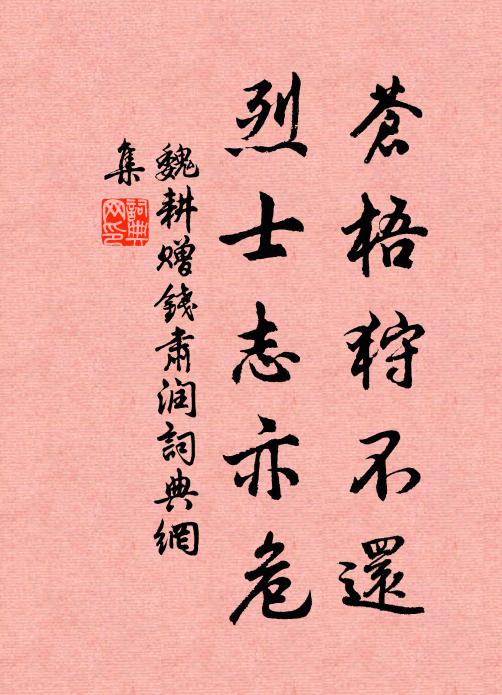 蒼梧狩不還
烈士志亦危
魏耕贈錢肅潤詞典網
集
詞典
网印